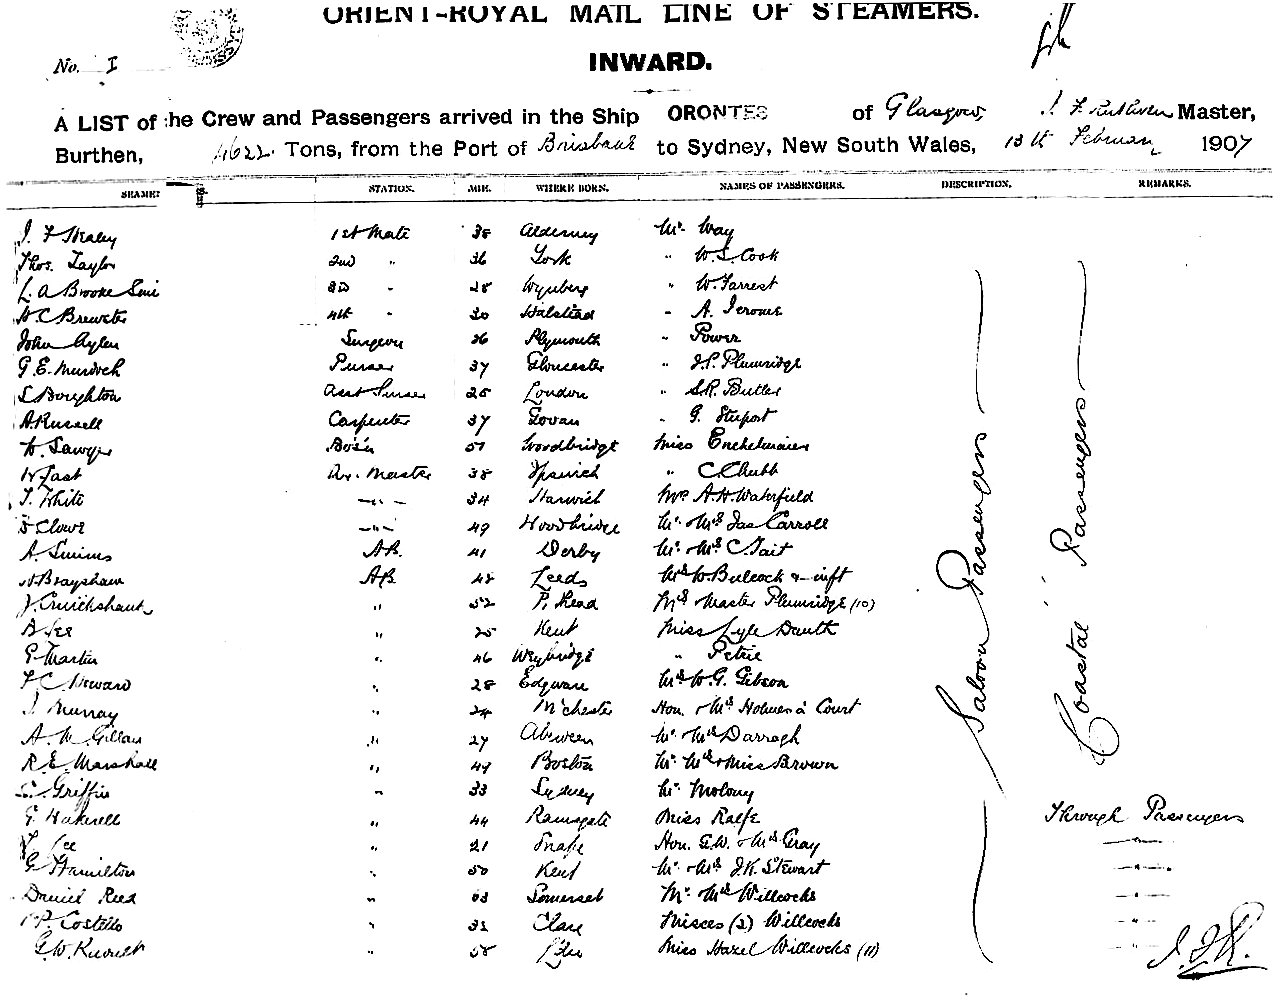 ORIENT-ROYAL MAIL LINE OF STEAMERS.
No. I
INWARD.
A LIST of the Crew and Passengers arrived in the Ship ORONTES of Glasgow, Master,
Burthen, 4622 Tons, from the Port of Brisbane to Sydney, New South Wales, 13th February 1907
STATION. AGE. WHERE BORN. NAMES OF PASSENGERS. DESCRIPTION. REMARKS.
1st Mate 38 Alderney Mr. Way
Thos. Taylor 2nd " 36 York " W.S. Cook
3D " 28 Wynberg " W. Tarrest
H.C. Brewster 4th " 30 Halstead " A. Jerome
John Aylen Surgeon 26 Plymouth " Power
G.E. Murdoch Purser 37 Gloucester " J.P. Plumridge
S Boughton Asst Purser 25 London " S.R. Butler
A Russell Carpenter 37 Govan " G.
W. Sawyer Bos'n 51 Woodbridge Miss
H Last Qr. Master 38 Ipswich " C. Chubb
T. White —"— 34 Harwich Mrs A.H. Waterfield
S Clowe —"— 49 Woodbridge Mr. & Mrs Jas Carroll
A. Simms AB. 41 Derby Mr. & Mrs C. Tait
Brayshaw AB 48 Leeds Mrs W. Bulcock & inft
J. Cruickshank " 52 P. Head Mrs & Master Plumridge (10)
A Lee " 25 Kent Miss Lyle Dauth
G Martin " 46 Weybridge " Petrie
F C Howard " 28 Edgware Mrs W.G. Gibson
J. Murray " 24 M'chester Hon. & Mrs Holmes à Court
A. McGillan " 27 Mr. & Mrs Darragh
R.E. Marshall " 49 Boston Mr. Mrs & Miss Brown
Griffin " 33 Sydney Mr. Molony
G. " 44 Ramsgate Miss Ralfe
Lee " 21 Snape Hon. G.W. & Mrs Gray
G Hamilton " 50 Kent Mr. & Mrs J.K. Stewart
Daniel Reed " 63 Somerset Mr. & Mrs Willcocks
Costello " 35 Clare Misses (2) Willcocks
G.W. " 58 Miss Hazel Willcocks (11)
Saloon Passengers
Coastal Passengers
Through Passengers
—"—
—"—
—"—
—"—
—"—